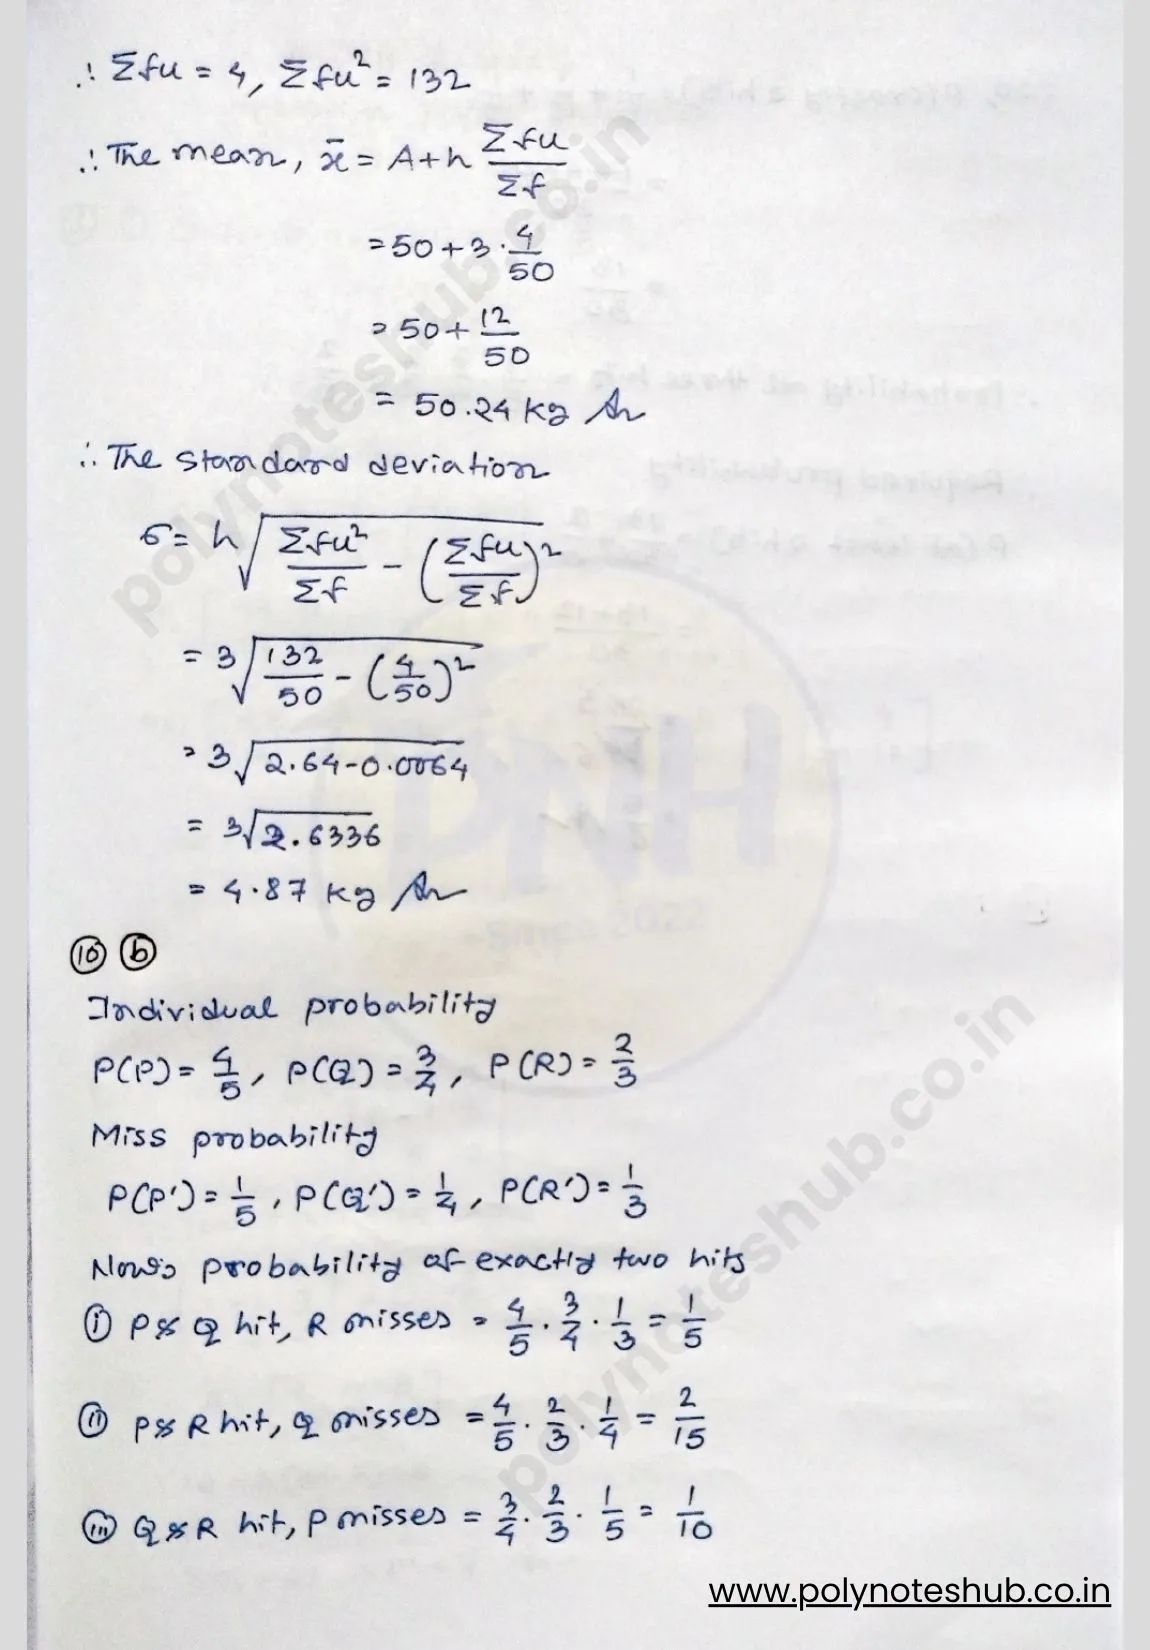 ∴ Σfu = 4, Σfu² = 132
∴ The mean, x̄ = A+h Σfu/Σf
= 50+3·4/50
= 50+12/50
= 50.24 kg An
∴ The standard deviation
σ = h√(Σfu²/Σf − (Σfu/Σf)²)
= 3√(132/50 − (4/50)²)
= 3√(2.64−0.0064)
= 3√2.6336
= 4.87 kg An
10 b
Individual probability
P(P) = 4/5, P(Q) = 3/4, P(R) = 2/3
Miss probability
P(P') = 1/5, P(Q') = 1/4, P(R') = 1/3
Now, probability of exactly two hits
(i) P & Q hit, R misses = 4/5 · 3/4 · 1/3 = 1/5
(ii) P & R hit, Q misses = 4/5 · 2/3 · 1/4 = 2/15
(iii) Q & R hit, P misses = 3/4 · 2/3 · 1/5 = 1/10
www.polynoteshub.co.in
polynoteshub.co.in
PNH
polynoteshub.co.in